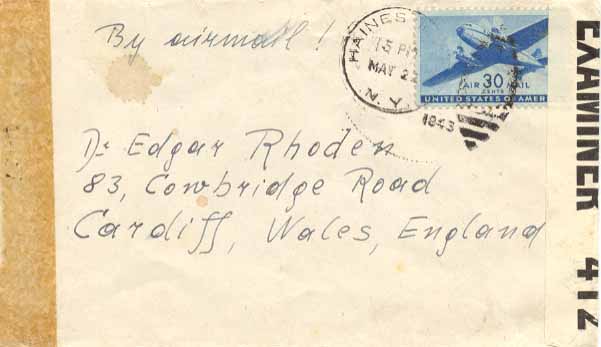 By airmail!
HAINES
15 PM
MAY 2
N.Y.
1943
AIR 30 MAIL
CENTS
UNITED STATES OF AMER
Dr Edgar Rhoden
83, Cowbridge Road
Cardiff, Wales, England
EXAMINER 412